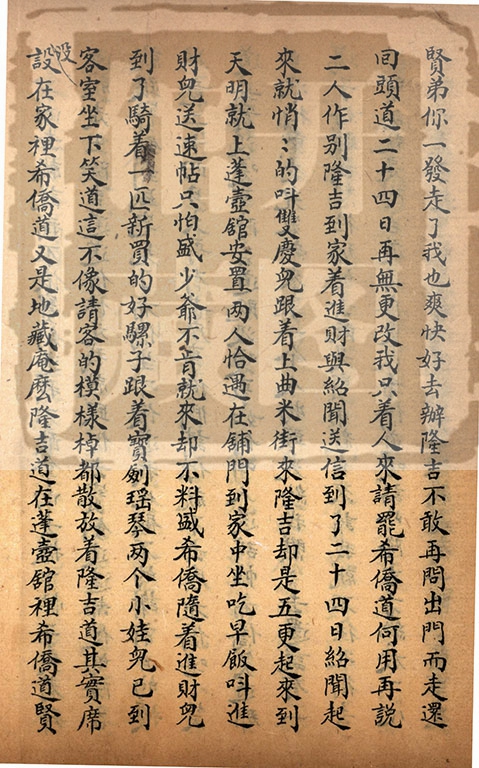 賢弟你一發走了我也爽快好去辦隆吉不敢再問出門而走還
回頭道二十四日再無更改我只着人來請罷希僑道何用再說
二人作别隆吉到家着進財與紹聞送信到了二十四日紹聞起
來就悄〻的呌雙慶兒跟着上曲米街來隆吉却是五更起來到
天明就上蓬壺舘安置兩人恰遇在舖門到家中坐吃早飯呌進
財兒送速帖只怕盛少爺不肯就來却不料盛希僑隨着進財兒
到了騎着一匹新買的好騾子跟着寶劍瑶琴两个小娃兒已到
客室坐下笑道這不像請客的模樣棹都散放着隆吉道其實席
没
設在家裡希僑道又是地藏庵麽隆吉道在蓬壺舘裡希僑道賢